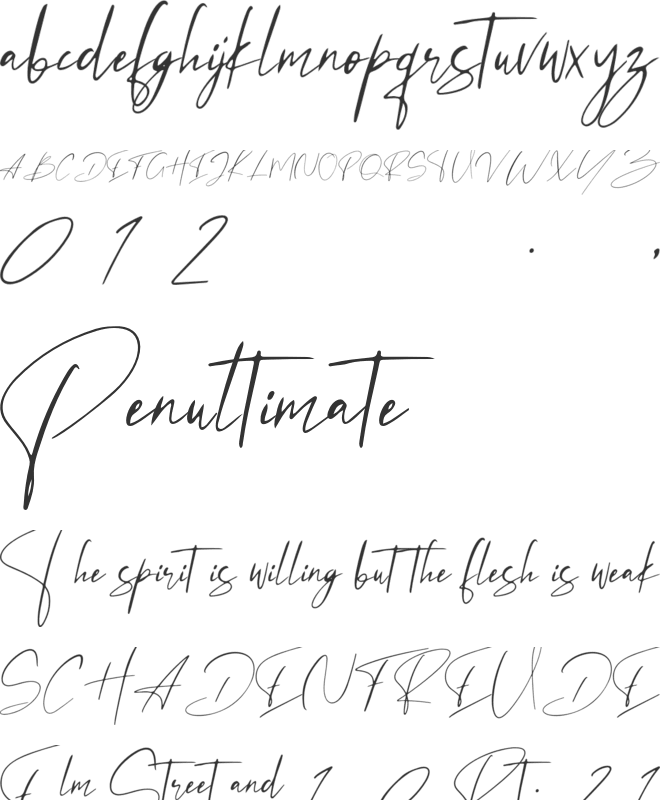 abcdefghijklmnopqrstuvwxyz
ABCDEFGHIJKLMNOPQRSTUVWXYZ
0 1 2 . ,
Penultimate
The spirit is willing but the flesh is weak
SCHADENFREUDE
Elm Street and 1 0 Pt. 2 1